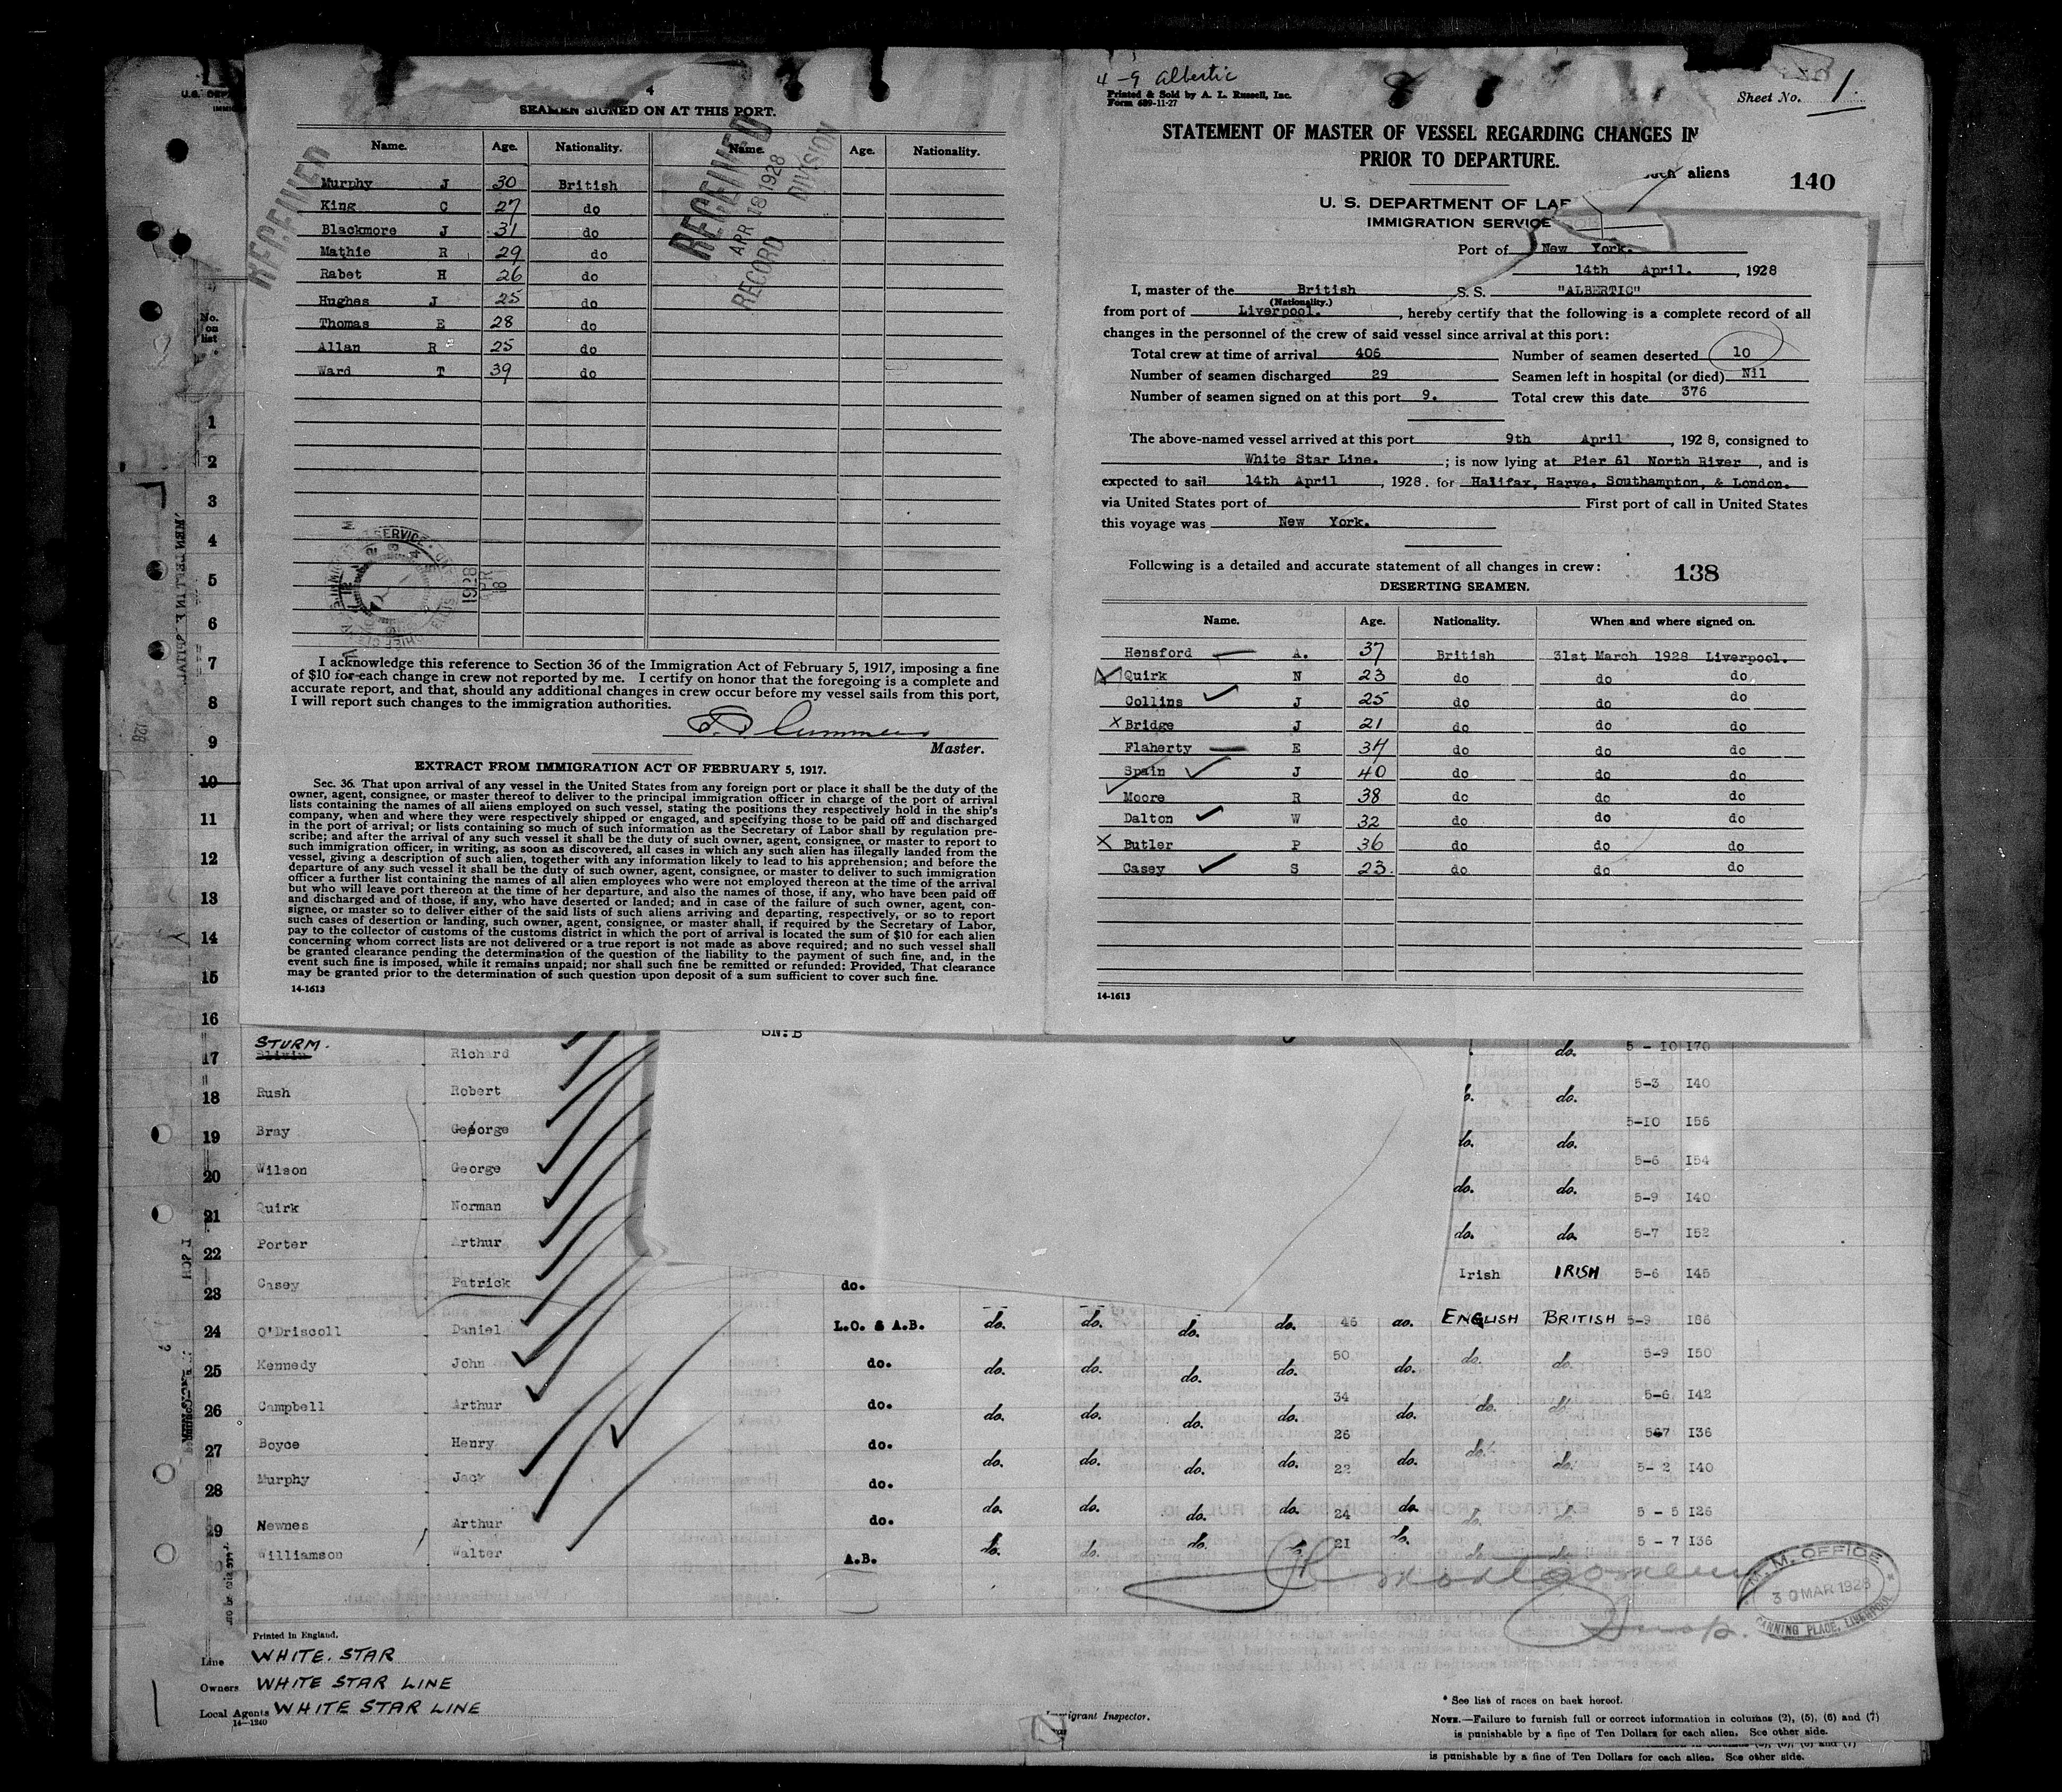 4
SEAMEN SIGNED ON AT THIS PORT.
Name. Age. Nationality. Name. Age. Nationality.
Murphy J 30 British
King C 27 do
Blackmore J 31 do
Mathie R 29 do
Rabet H 26 do
Hughes J 25 do
Thomas E 28 do
Allan R 25 do
Ward T 39 do
RECEIVED
RECEIVED
APR 18 1928
RECORD DIVISION
I acknowledge this reference to Section 36 of the Immigration Act of February 5, 1917, imposing a fine
of $10 for each change in crew not reported by me. I certify on honor that the foregoing is a complete and
accurate report, and that, should any additional changes in crew occur before my vessel sails from this port,
I will report such changes to the immigration authorities.
Master.
EXTRACT FROM IMMIGRATION ACT OF FEBRUARY 5, 1917.
Sec. 36. That upon arrival of any vessel in the United States from any foreign port or place it shall be the duty of the
owner, agent, consignee, or master thereof to deliver to the principal immigration officer in charge of the port of arrival
lists containing the names of all aliens employed on such vessel, stating the positions they respectively hold in the ship's
company, when and where they were respectively shipped or engaged, and specifying those to be paid off and discharged
in the port of arrival; or lists containing so much of such information as the Secretary of Labor shall by regulation pre-
scribe; and after the arrival of any such vessel it shall be the duty of such owner, agent, consignee, or master to report to
such immigration officer, in writing, as soon as discovered, all cases in which any such alien has illegally landed from the
vessel, giving a description of such alien, together with any information likely to lead to his apprehension; and before the
departure of any such vessel it shall be the duty of such owner, agent, consignee, or master to deliver to such immigration
officer a further list containing the names of all alien employees who were not employed thereon at the time of the arrival
but who will leave port thereon at the time of her departure, and also the names of those, if any, who have been paid off
and discharged and of those, if any, who have deserted or landed; and in case of the failure of such owner, agent, con-
signee, or master so to deliver either of the said lists of such aliens arriving and departing, respectively, or so to report
such cases of desertion or landing, such owner, agent, consignee, or master shall, if required by the Secretary of Labor,
pay to the collector of customs of the customs district in which the port of arrival is located the sum of $10 for each alien
concerning whom correct lists are not delivered or a true report is not made as above required; and no such vessel shall
be granted clearance pending the determination of the question of the liability to the payment of such fine, and, in the
event such fine is imposed, while it remains unpaid; nor shall such fine be remitted or refunded: Provided, That clearance
may be granted prior to the determination of such question upon deposit of a sum sufficient to cover such fine.
14-1613
4-9 Albertic
Printed & Sold by A. L. Russell, Inc.
Form 689-11-27
Sheet No. 1.
STATEMENT OF MASTER OF VESSEL REGARDING CHANGES IN
PRIOR TO DEPARTURE.
such aliens
140
U. S. DEPARTMENT OF LAB
IMMIGRATION SERVICE
Port of New York.
14th April. , 1928
I, master of the British S. S. "ALBERTIC"
(Nationality.)
from port of Liverpool. , hereby certify that the following is a complete record of all
changes in the personnel of the crew of said vessel since arrival at this port:
Total crew at time of arrival 406 Number of seamen deserted 10
Number of seamen discharged 29 Seamen left in hospital (or died) Nil
Number of seamen signed on at this port 9. Total crew this date 376
The above-named vessel arrived at this port 9th April , 1928, consigned to
White Star Line. ; is now lying at Pier 61 North River , and is
expected to sail 14th April , 1928. for Halifax, Harve, Southampton, & London.
via United States port of First port of call in United States
this voyage was New York.
Following is a detailed and accurate statement of all changes in crew: 138
DESERTING SEAMEN.
Name. Age. Nationality. When and where signed on.
Hensford A. 37 British 31st March 1928 Liverpool.
Quirk N 23 do do do
Collins J 25 do do do
Bridge J 21 do do do
Flaherty E 34 do do do
Spain J 40 do do do
Moore R 38 do do do
Dalton W 32 do do do
Butler P 36 do do do
Casey S 23. do do do
14-1613
No. on list
1
2
3
4
5
6
7
8
9
10
11
12
13
14
15
16
17 STURM. Richard do. 5 - 10 170
18 Rush Robert do. 5-3 140
19 Bray George do. do. 5-10 156
20 Wilson George do. do. 5-6 154
21 Quirk Norman do. do. 5-9 140
22 Porter Arthur do. do. 5-7 152
23 Casey Patrick do. Irish IRISH 5-6 145
24 O'Driscoll Daniel L.O. & A.B. do. do. do. do. 46 do. ENGLISH BRITISH 5-9 186
25 Kennedy John do. do. do. do. do. 50 do. do. do. 5-9 150
26 Campbell Arthur do. do. do. do. do. 34 do. do. do. 5-6 142
27 Boyce Henry do. do. do. do. do. 26 do. do. 5-7 136
28 Murphy Jack do. do. do. do. do. 22 do. do. do. 5- 2 140
29 Newnes Arthur do. do. do. do. do. 24 do. do. do. 5 - 5 126
Williamson Walter A.B. do. do. do. do. 21 do. do. do. 5 - 7 136
M.M. OFFICE
30 MAR 1928
CANNING PLACE, LIVERPOOL
Printed in England.
Line WHITE. STAR
Owners WHITE STAR LINE
Local Agents WHITE STAR LINE
14-1240
Immigrant Inspector.
* See list of races on back hereof.
NOTE.—Failure to furnish full or correct information in columns (2), (5), (6) and (7)
is punishable by a fine of Ten Dollars for each alien. See other side.
is punishable by a fine of Ten Dollars for each alien. See other side.